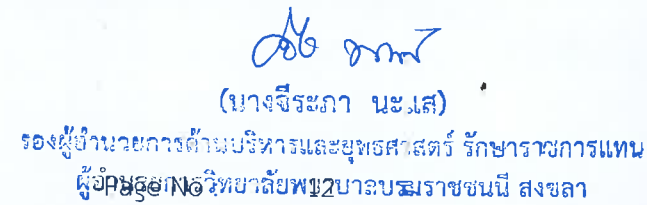 (นางจีระภา นะแส)
รองผู้อำนวยการด้านบริหารและยุทธศาสตร์ รักษาราชการแทน
ผู้อำนวยการวิทยาลัยพยาบาลบรมราชชนนี สงขลา
Page No 12